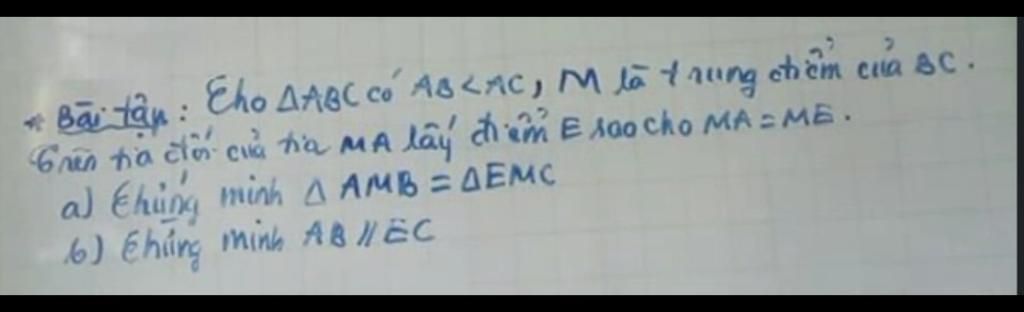 * Bài tập: Cho ΔABC có AB < AC, M là trung điểm của BC.
Trên tia đối của tia MA lấy điểm E sao cho MA = ME.
a) Chứng minh Δ AMB = ΔEMC
b) Chứng minh AB // EC